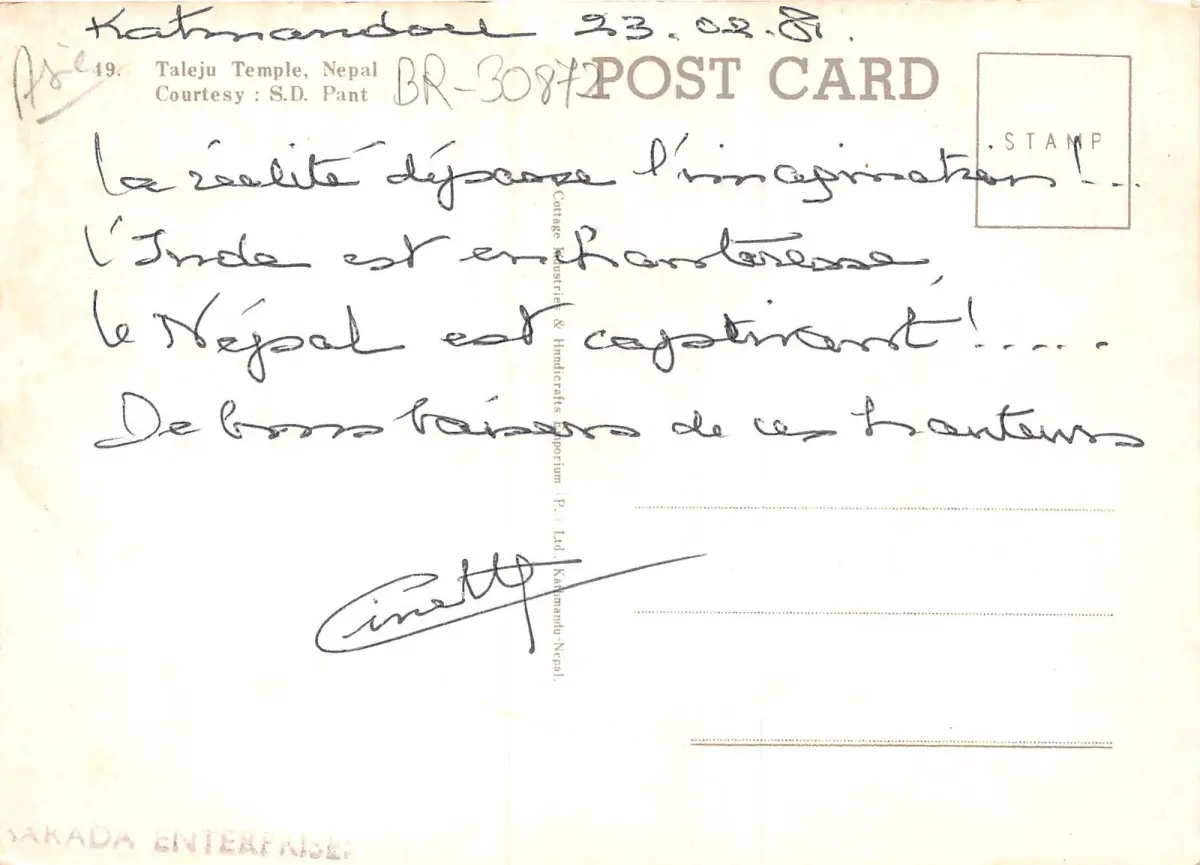 Katmandou 23.02.81.
Asie
49. Taleju Temple, Nepal
Courtesy : S.D. Pant
BR-30872
POST CARD
STAMP
La réalité dépasse l'imagination!...
l'Inde est enchanteresse,
le Népal est captivant!.....
De bons baisers de ces hauteurs
Cottage Industries & Handicrafts Emporium (P.) Ltd., Kathmandu-Nepal.
ENTERPRISES